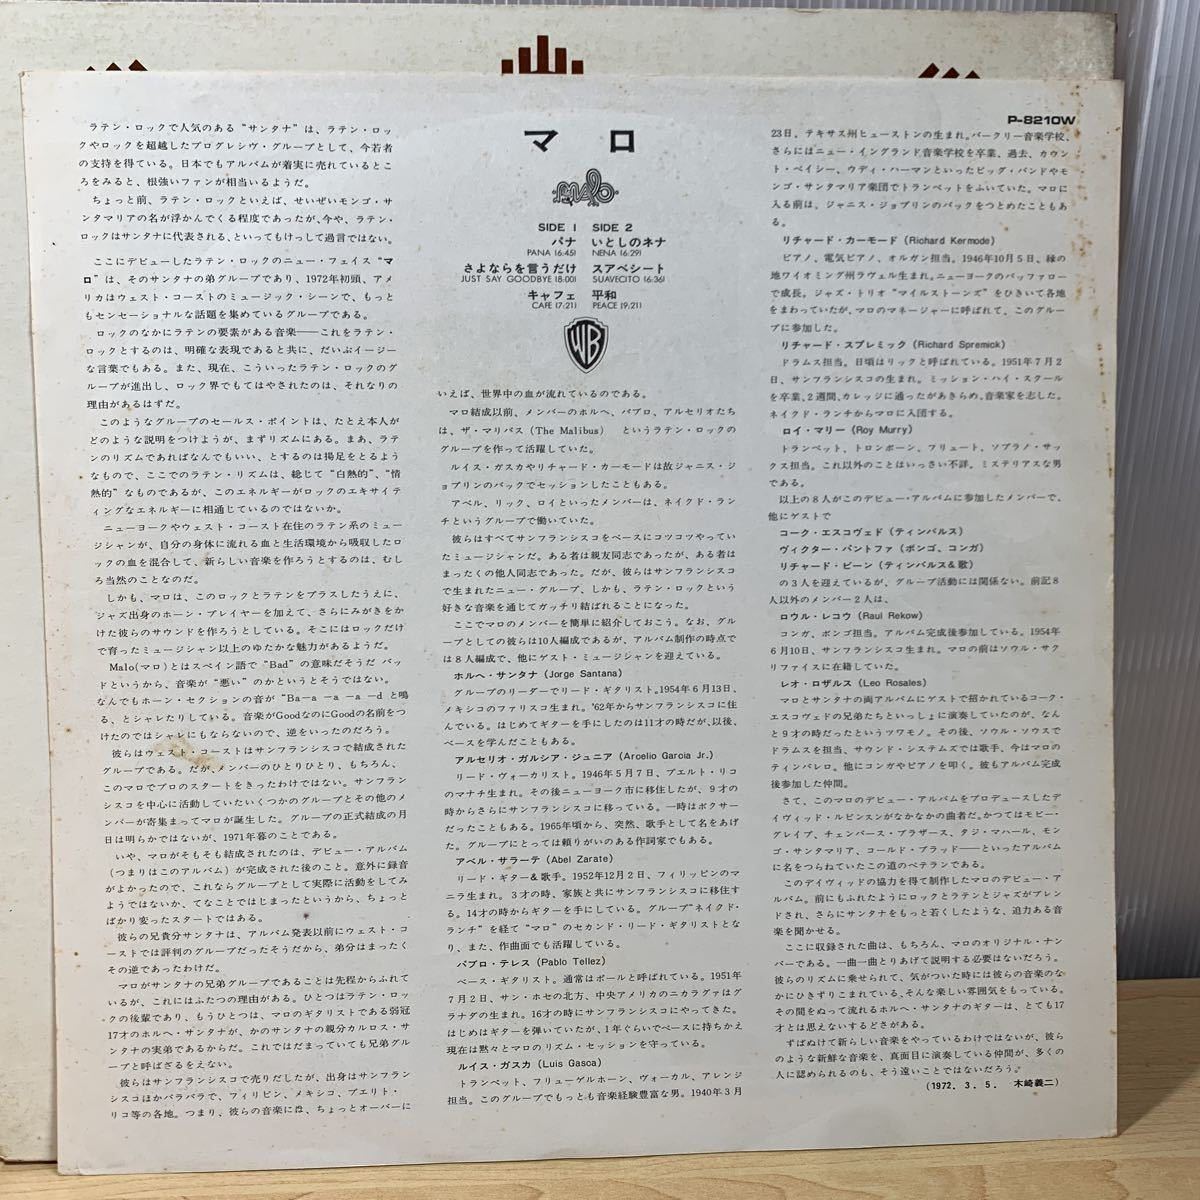 P-8210W
マロ
malo
SIDE 1
パナ
PANA (6:45)
さよならを言うだけ
JUST SAY GOODBYE (8:00)
キャフェ
CAFE (7:21)
SIDE 2
いとしのネナ
NENA (6:29)
スアベシート
SUAVECITO (6:36)
平和
PEACE (9:21)
WB
ラテン・ロックで人気のある“サンタナ”は、ラテン・ロッ
クやロックを超越したプログレシヴ・グループとして、今若者
の支持を得ている。日本でもアルバムが着実に売れているとこ
ろをみると、根強いファンが相当いるようだ。
ちょっと前、ラテン・ロックといえば、せいぜいモンゴ・サ
ンタマリアの名が浮かんでくる程度であったが、今や、ラテン・
ロックはサンタナに代表される、といってもけっして過言ではない。
ここにデビューしたラテン・ロックのニュー・フェイス“マ
ロ”は、そのサンタナの弟グループであり、1972年初頭、アメ
リカはウェスト・コーストのミュージック・シーンで、もっと
もセンセーショナルな話題を集めているグループである。
ロックのなかにラテンの要素がある音楽——これをラテン・
ロックとするのは、明確な表現であると共に、だいぶイージー
な言葉でもある。また、現在、こういったラテン・ロックのグ
ループが進出し、ロック界でもてはやされたのは、それなりの
理由があるはずだ。
このようなグループのセールス・ポイントは、たとえ本人が
どのような説明をつけようが、まずリズムにある。まあ、ラテ
ンのリズムであればなんでもいい、とするのは揚足をとるよう
なもので、ここでのラテン・リズムは、総じて“白熱的”、“情
熱的”なものであるが、このエネルギーがロックのエキサイテ
ィングなエネルギーに相通じているのではないか。
ニューヨークやウェスト・コースト在住のラテン系のミュー
ジシャンが、自分の身体に流れる血と生活環境から吸収したロ
ックの血を混合して、新らしい音楽を作ろうとするのは、むし
ろ当然のことなのだ。
しかも、マロは、このロックとラテンをプラスしたうえに、
ジャズ出身のホーン・プレイヤーを加えて、さらにみがきをか
けた彼らのサウンドを作ろうとしている。そこにはロックだけ
で育ったミュージシャン以上のゆたかな魅力があるようだ。
Malo(マロ)とはスペイン語で“Bad”の意味だそうだ バッ
ドというから、音楽が“悪い”のかというとそうではない。
なんでもホーン・セクションの音が“Ba—a —a —a —d と鳴
る、とシャレたりしている。音楽がGoodなのにGoodの名前をつ
けたのではシャレにもならないので、逆をいったのだろう。
彼らはウェスト・コーストはサンフランシスコで結成された
グループである。だが、メンバーのひとりひとり、もちろん、
このマロでプロのスタートをきったわけではない。サンフラン
シスコを中心に活動していたいくつかのグループとその他のメ
ンバーが寄集まってマロが誕生した。グループの正式結成の月
日は明らかではないが、1971年暮のことである。
いや、マロがそもそも結成されたのは、デビュー・アルバム
(つまりはこのアルバム) が完成された後のこと。意外に録音
がよかったので、これならグループとして実際に活動をしてみ
ようではないか、てなことではじまったというから、ちょっと
ばかり変ったスタートではある。
彼らの兄貴分サンタナは、アルバム発表以前にウェスト・コ
ーストでは評判のグループだったそうだから、弟分はまったく
その逆であったわけだ。
マロがサンタナの兄弟グループであることは先程からふれて
いるが、これにはふたつの理由がある。ひとつはラテン・ロッ
クの後輩であり、もうひとつは、マロのギタリストである弱冠
17才のホルヘ・サンタナが、かのサンタナの親分カルロス・サ
ンタナの実弟であるからだ。これではだまっていても兄弟グル
ープと呼ばざるをえない。
彼らはサンフランシスコで売りだしたが、出身はサンフラン
シスコほかバラバラで、フィリピン、メキシコ、プエリト・
リコ等の各地。つまり、彼らの音楽には、ちょっとオーバーに
いえば、世界中の血が流れているのである。
マロ結成以前、メンバーのホルヘ、パブロ、アルセリオたち
は、ザ・マリバス (The Malibus) というラテン・ロックの
グループを作って活躍していた。
ルイス・ガスカやリチャード・カーモードは故ジャニス・ジ
ョプリンのバックでセッションしたこともある。
アベル、リック、ロイといったメンバーは、ネイクド・ラン
チというグループで働いていた。
彼らはすべてサンフランシスコをベースにコツコツやってい
たミュージシャンだ。ある者は親友同志であったが、ある者は
まったくの他人同志であった。だが、彼らはサンフランシスコ
で生まれたニュー・グループ、しかも、ラテン・ロックという
好きな音楽を通じてガッチリ結ばれることになった。
ここでマロのメンバーを簡単に紹介しておこう。なお、グル
ープとしての彼らは10人編成であるが、アルバム制作の時点で
は8人編成で、他にゲスト・ミュージシャンを迎えている。
ホルヘ・サンタナ (Jorge Santana)
グループのリーダーでリード・ギタリスト。1954年6月13日、
メキシコのファリスコ生まれ。'62年からサンフランシスコに住
んでいる。はじめてギターを手にしたのは11才の時だが、以後、
ベースを学んだこともある。
アルセリオ・ガルシア・ジュニア (Arcelio Garcia Jr.)
リード・ヴォーカリスト。1946年5月7日、プエルト・リコ
のマナチ生まれ。その後ニューヨーク市に移住したが、9才の
時からさらにサンフランシスコに移っている。一時はボクサー
だったこともある。1965年頃から、突然、歌手として名をあげ
た。グループにとっては頼りがいのある作詞家でもある。
アベル・サラーテ (Abel Zarate)
リード・ギター&歌手。1952年12月2日、フィリッピンのマ
ニラ生まれ。3才の時、家族と共にサンフランシスコに移住す
る。14才の時からギターを手にしている。グループ“ネイクド・
ランチ”を経て“マロ”のセカンド・リード・ギタリストとな
り、また、作曲面でも活躍している。
パブロ・テレス (Pablo Tellez)
ベース・ギタリスト。通常はポールと呼ばれている。1951年
7月2日、サン・ホセの北方、中央アメリカのニカラグァはグ
ラナダの生まれ。16才の時にサンフランシスコにやってきた。
はじめはギターを弾いていたが、1年ぐらいでベースに持ちかえ
現在は黙々とマロのリズム・セッションを守っている。
ルイス・ガスカ (Luis Gasca)
トランペット、フリューゲルホーン、ヴォーカル、アレンジ
担当。このグループでもっとも音楽経験豊富な男。1940年3月
23日、テキサス州ヒューストンの生まれ。バークリー音楽学校、
さらにはニュー・イングランド音楽学校を卒業、過去、カウン
ト・ベイシー、ウディ・ハーマンといったビッグ・バンドやモ
ンゴ・サンタマリア楽団でトランペットをふいていた。マロに
入る前は、ジャニス・ジョプリンのバックをつとめたこともあ
る。
リチャード・カーモード (Richard Kermode)
ピアノ、電気ピアノ、オルガン担当。1946年10月5日、緑の
地ワイオミング州ラヴェル生まれ。ニューヨークのバッファロー
で成長。ジャズ・トリオ“マイルストーンズ”をひきいて各地
をまわっていたが、マロのマネージャーに呼ばれて、このグルー
プに参加した。
リチャード・スプレミック (Richard Spremick)
ドラムス担当。日頃はリックと呼ばれている。1951年7月2
日、サンフランシスコの生まれ。ミッション・ハイ・スクール
を卒業、2週間、カレッジに通ったがあきらめ、音楽家を志した。
ネイクド・ランチからマロに入団する。
ロイ・マリー (Roy Murry)
トランペット、トロンボーン、フリュート、ソプラノ・サッ
クス担当。これ以外のことはいっさい不詳。ミステリアスな男
である。
以上の8人がこのデビュー・アルバムに参加したメンバーで、
他にゲストで
コーク・エスコヴェド (ティンバルス)
ヴィクター・パントファ (ボンゴ、コンガ)
リチャード・ビーン (ティンバルス&歌)
の3人を迎えているが、グループ活動には関係ない。前記8
人以外のメンバー2人は、
ロウル・レコウ (Raul Rekow)
コンガ、ボンゴ担当。アルバム完成後参加している。1954年
6月10日、サンフランシスコ生まれ。マロの前はソウル・サク
リファイスに在籍していた。
レオ・ロザルス (Leo Rosales)
マロとサンタナの両アルバムにゲストで招かれているコーク・
エスコヴェドの兄弟たちといっしょに演奏していたのが、なん
と9才の時だったというツワモノ。その後、ソウル・ソウスで
ドラムスを担当、サウンド・システムズでは歌手、今はマロの
ティンバレロ。他にコンガやピアノを叩く。彼もアルバム完成
後参加した仲間。
さて、このマロのデビュー・アルバムをプロデュースしたデ
イヴィッド・ルビンスンがなかなかの曲者だ。かつてはモビー・
グレイプ、チェンバース・ブラザース、タジ・マハール、モン
ゴ・サンタマリア、コールド・ブラッド——といったアルバム
に名をつらねていたこの道のベテランである。
このデイヴィッドの協力を得て制作したマロのデビュー・ア
ルバム。前にもふれたようにロックとラテンとジャズがブレン
ドされ、さらにサンタナをもっと若くしたような、迫力ある音
楽を聞かせる。
ここに収録された曲は、もちろん、マロのオリジナル・ナン
バーである。一曲一曲とりあげて説明する必要はないだろう。
彼らのリズムに乗せられて、気がついた時には彼らの音楽のな
かにひきずりこまれている、そんな楽しい雰囲気をもっている。
その間をぬって流れるホルヘ・サンタナのギターは、とても17
才とは思えないするどさがある。
ずばぬけて新らしい音楽をやっているわけではないが、彼ら
のような新鮮な音楽を、真面目に演奏している仲間が、多くの
人に認められるのも、そう遠いことではないだろう。
(1972. 3. 5. 木崎義二)